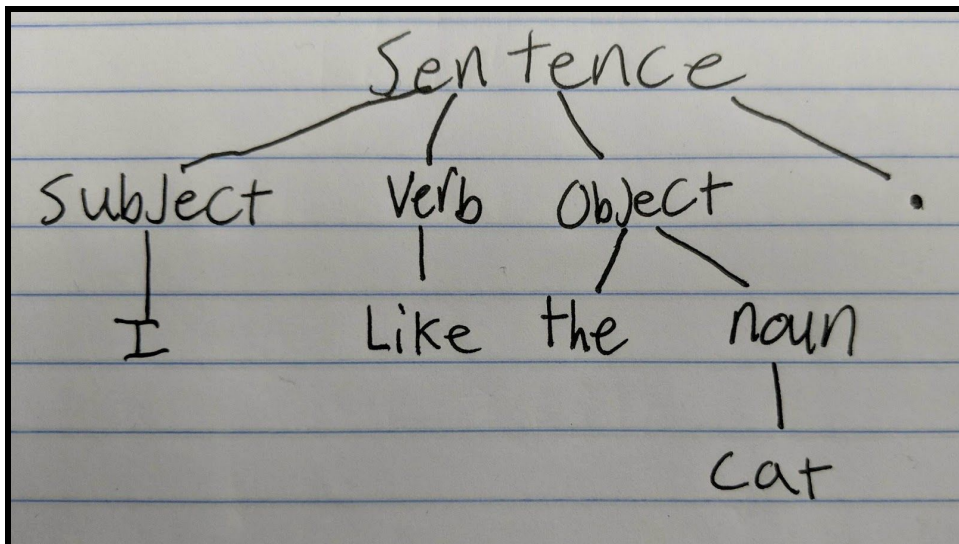 Sentence
Subject Verb Object .
I Like the noun
cat